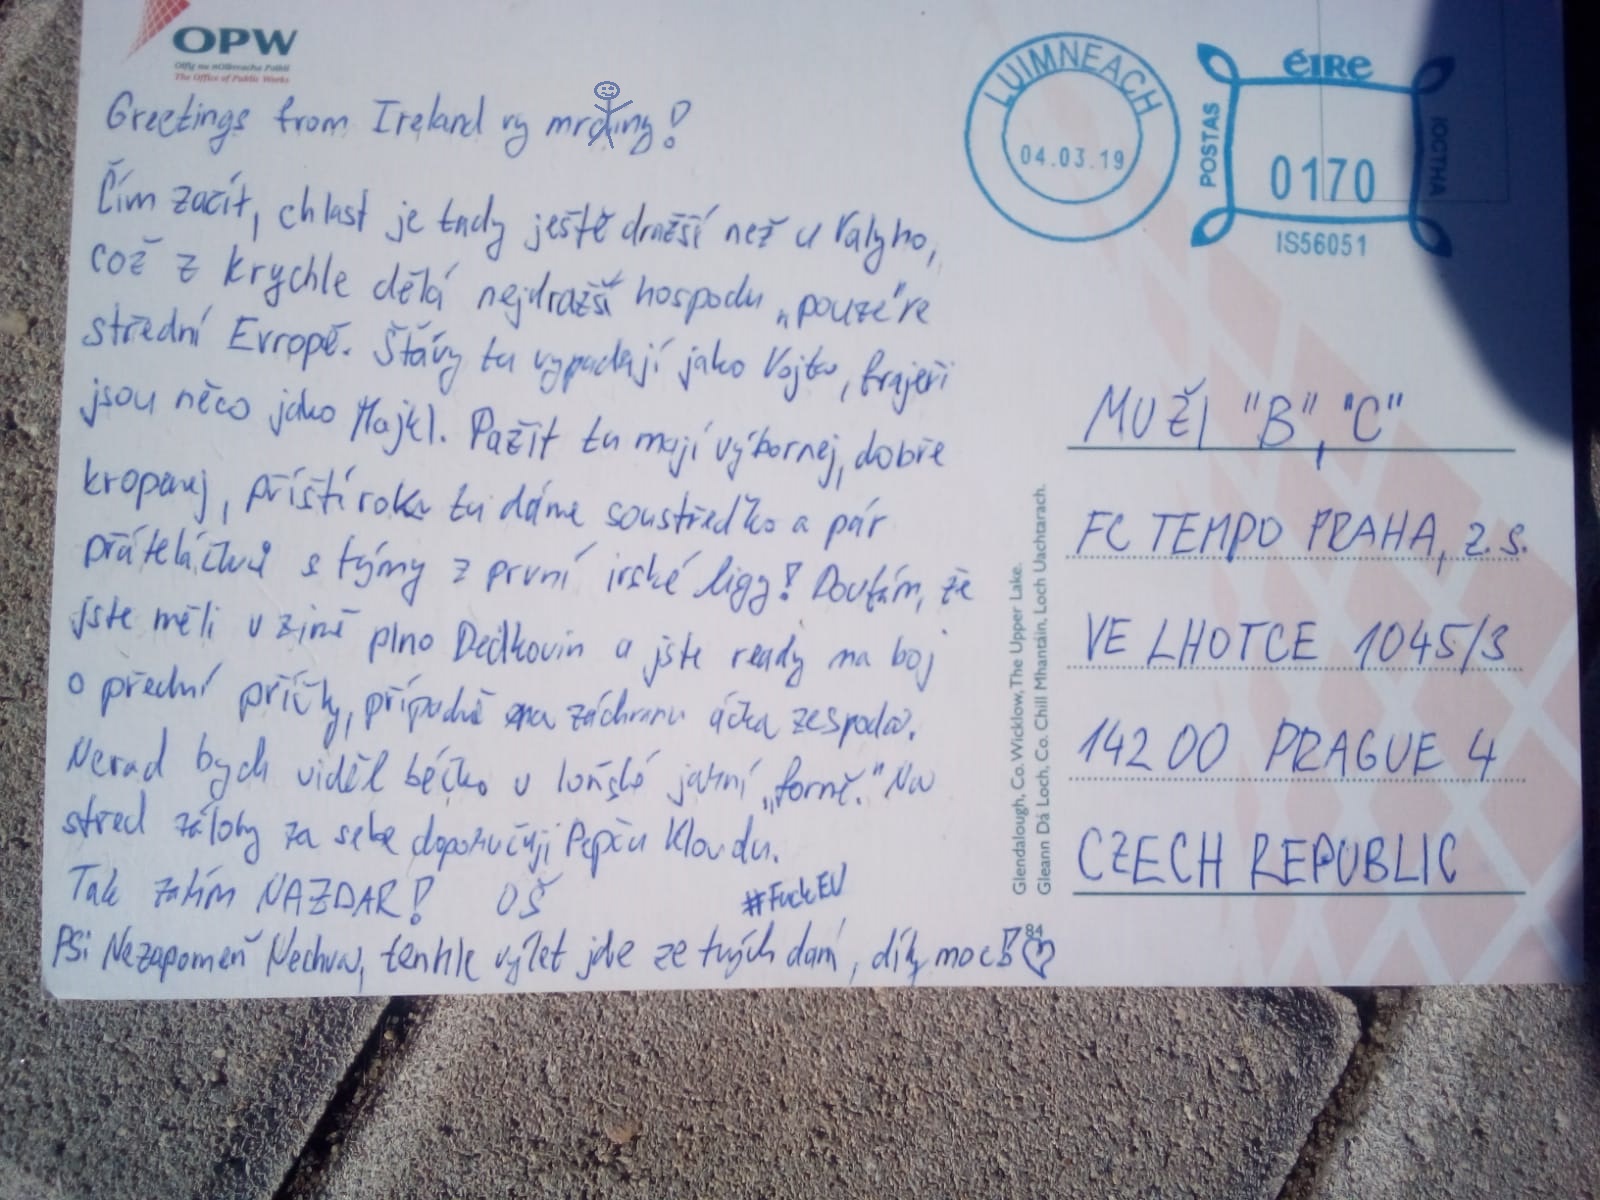 OPW
Oifig na nOibreacha Poiblí
The Office of Public Works
Greetings from Ireland vy mrdiny!
Čím začít, chlast je tady ještě dražší než u Valyho,
což z Krychle dělá nejdražší hospodu „pouze" ve
střední Evropě. Šťávy tu vypadají jako Vojta, frajeři
jsou něco jako Majkl. Pažit tu mají výbornej, dobře
kropenej, příští roku tu dáme soustředko a pár
přáteláčků s týmy z první irské ligy! Doufám, že
jste měli v zimě plno Dědkovin a jste ready na boj
o přední příčky, případně na záchranu áčka zespoda.
Nerad bych viděl béčko v loňské jarní „formě." Na
střed zálohy za sebe doporučuji Pepču Kloudu.
Tak zatím NAZDAR! OŠ #FuckEU
PS: Nezapomeň Nechva, tenhle výlet jde ze tvých daní, díky moc!! ♡
LUIMNEACH
04.03.19
POSTAS
éIRe
IOCTHA
0170
IS56051
MUŽI "B", "C"
FC TEMPO PRAHA, z.s.
VE LHOTCE 1045/3
142 00 PRAGUE 4
CZECH REPUBLIC
Glendalough, Co. Wicklow, The Upper Lake.
Gleann Dá Loch, Co. Chill Mhantáin, Loch Uachtarach.
84